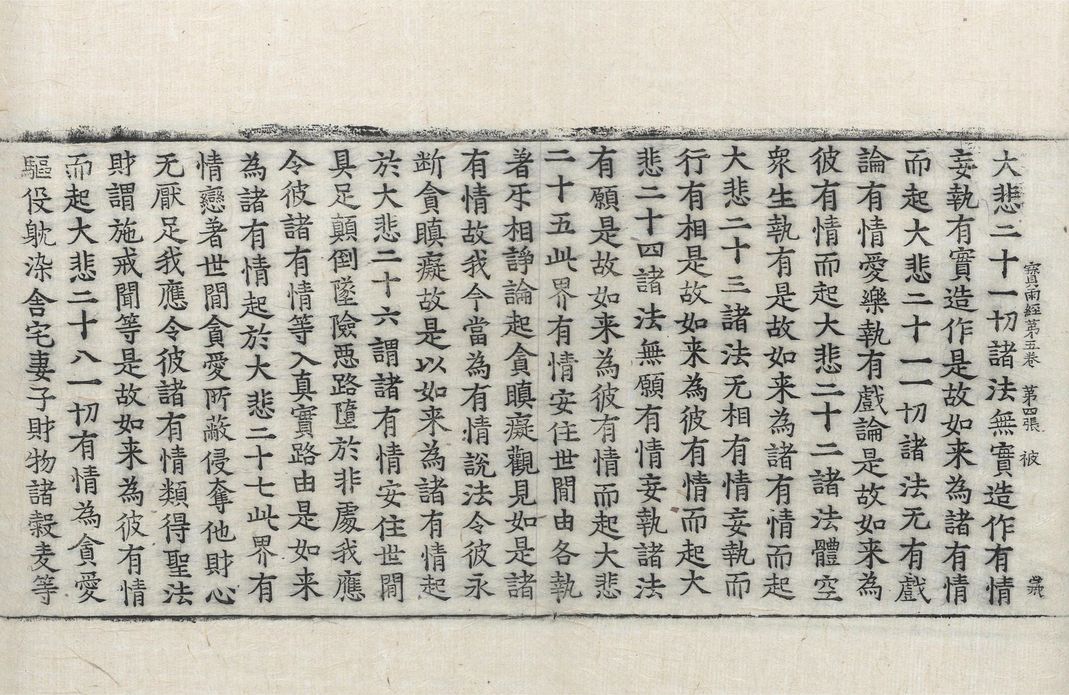 寶雨經第五卷 第四張 被
大悲二十一切諸法無實造作有情
妄執有實造作是故如来為諸有情
而起大悲二十一一切諸法无有戲
論有情愛樂執有戲論是故如来為
彼有情而起大悲二十二諸法體空
衆生執有是故如来為諸有情而起
大悲二十三諸法无相有情妄執而
行有相是故如来為彼有情而起大
悲二十四諸法無願有情妄執諸法
有願是故如来為彼有情而起大悲
二十五此界有情安住世間由各執
著互相諍論起貪瞋癡觀見如是諸
有情故我今當為有情說法令彼永
断貪瞋癡故是以如来為諸有情起
於大悲二十六謂諸有情安住世間
具足顛倒墜險惡路墮於非處我應
令彼諸有情等入真實路由是如来
為諸有情起於大悲二十七此界有
情戀著世間貪愛所蔽侵奪他財心
无厭足我應令彼諸有情類得聖法
財謂施戒聞等是故如来為彼有情
而起大悲二十八一切有情為貪愛
驅役躭染舍宅妻子財物諸穀麦等